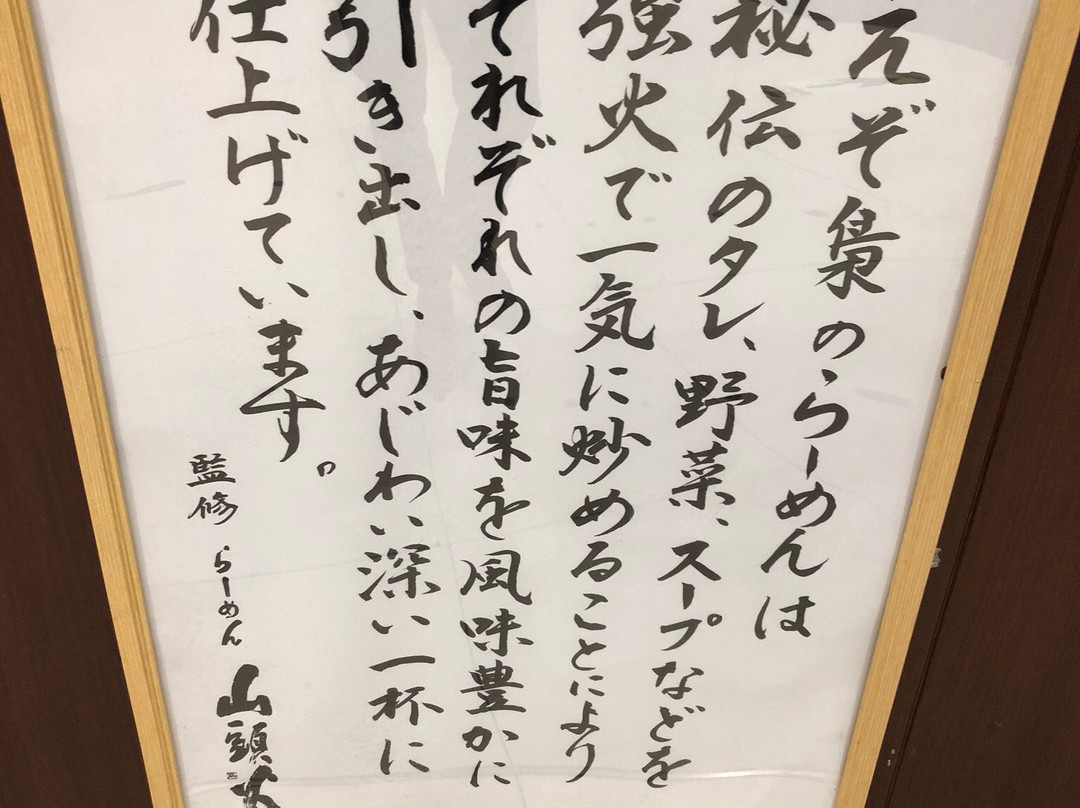 えぞ梟のらーめんは
秘伝のタレ、野菜、スープなどを
強火で一気に炒めることにより
それぞれの旨味を風味豊かに
引き出し、あじわい深い一杯に
仕上げています。
監修 らーめん 山頭火